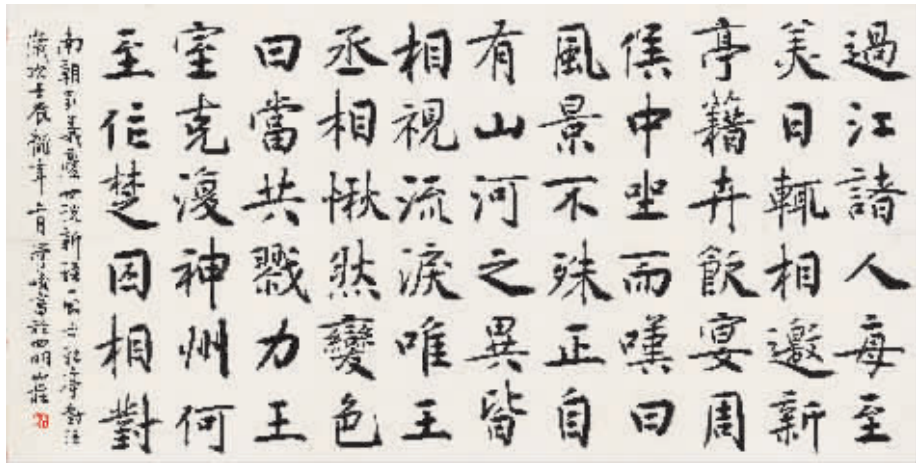 過江諸人每至
美日輒相邀新
亭籍卉飲宴周
侯中坐而嘆曰
風景不殊正自
有山河之異皆
相視流淚唯王
丞相愀然變色
曰當共戮力王
室克復神州何
至作楚囚相對
南朝劉義慶世說新語新亭對泣
歲次壬辰龍年月寫於四明山莊